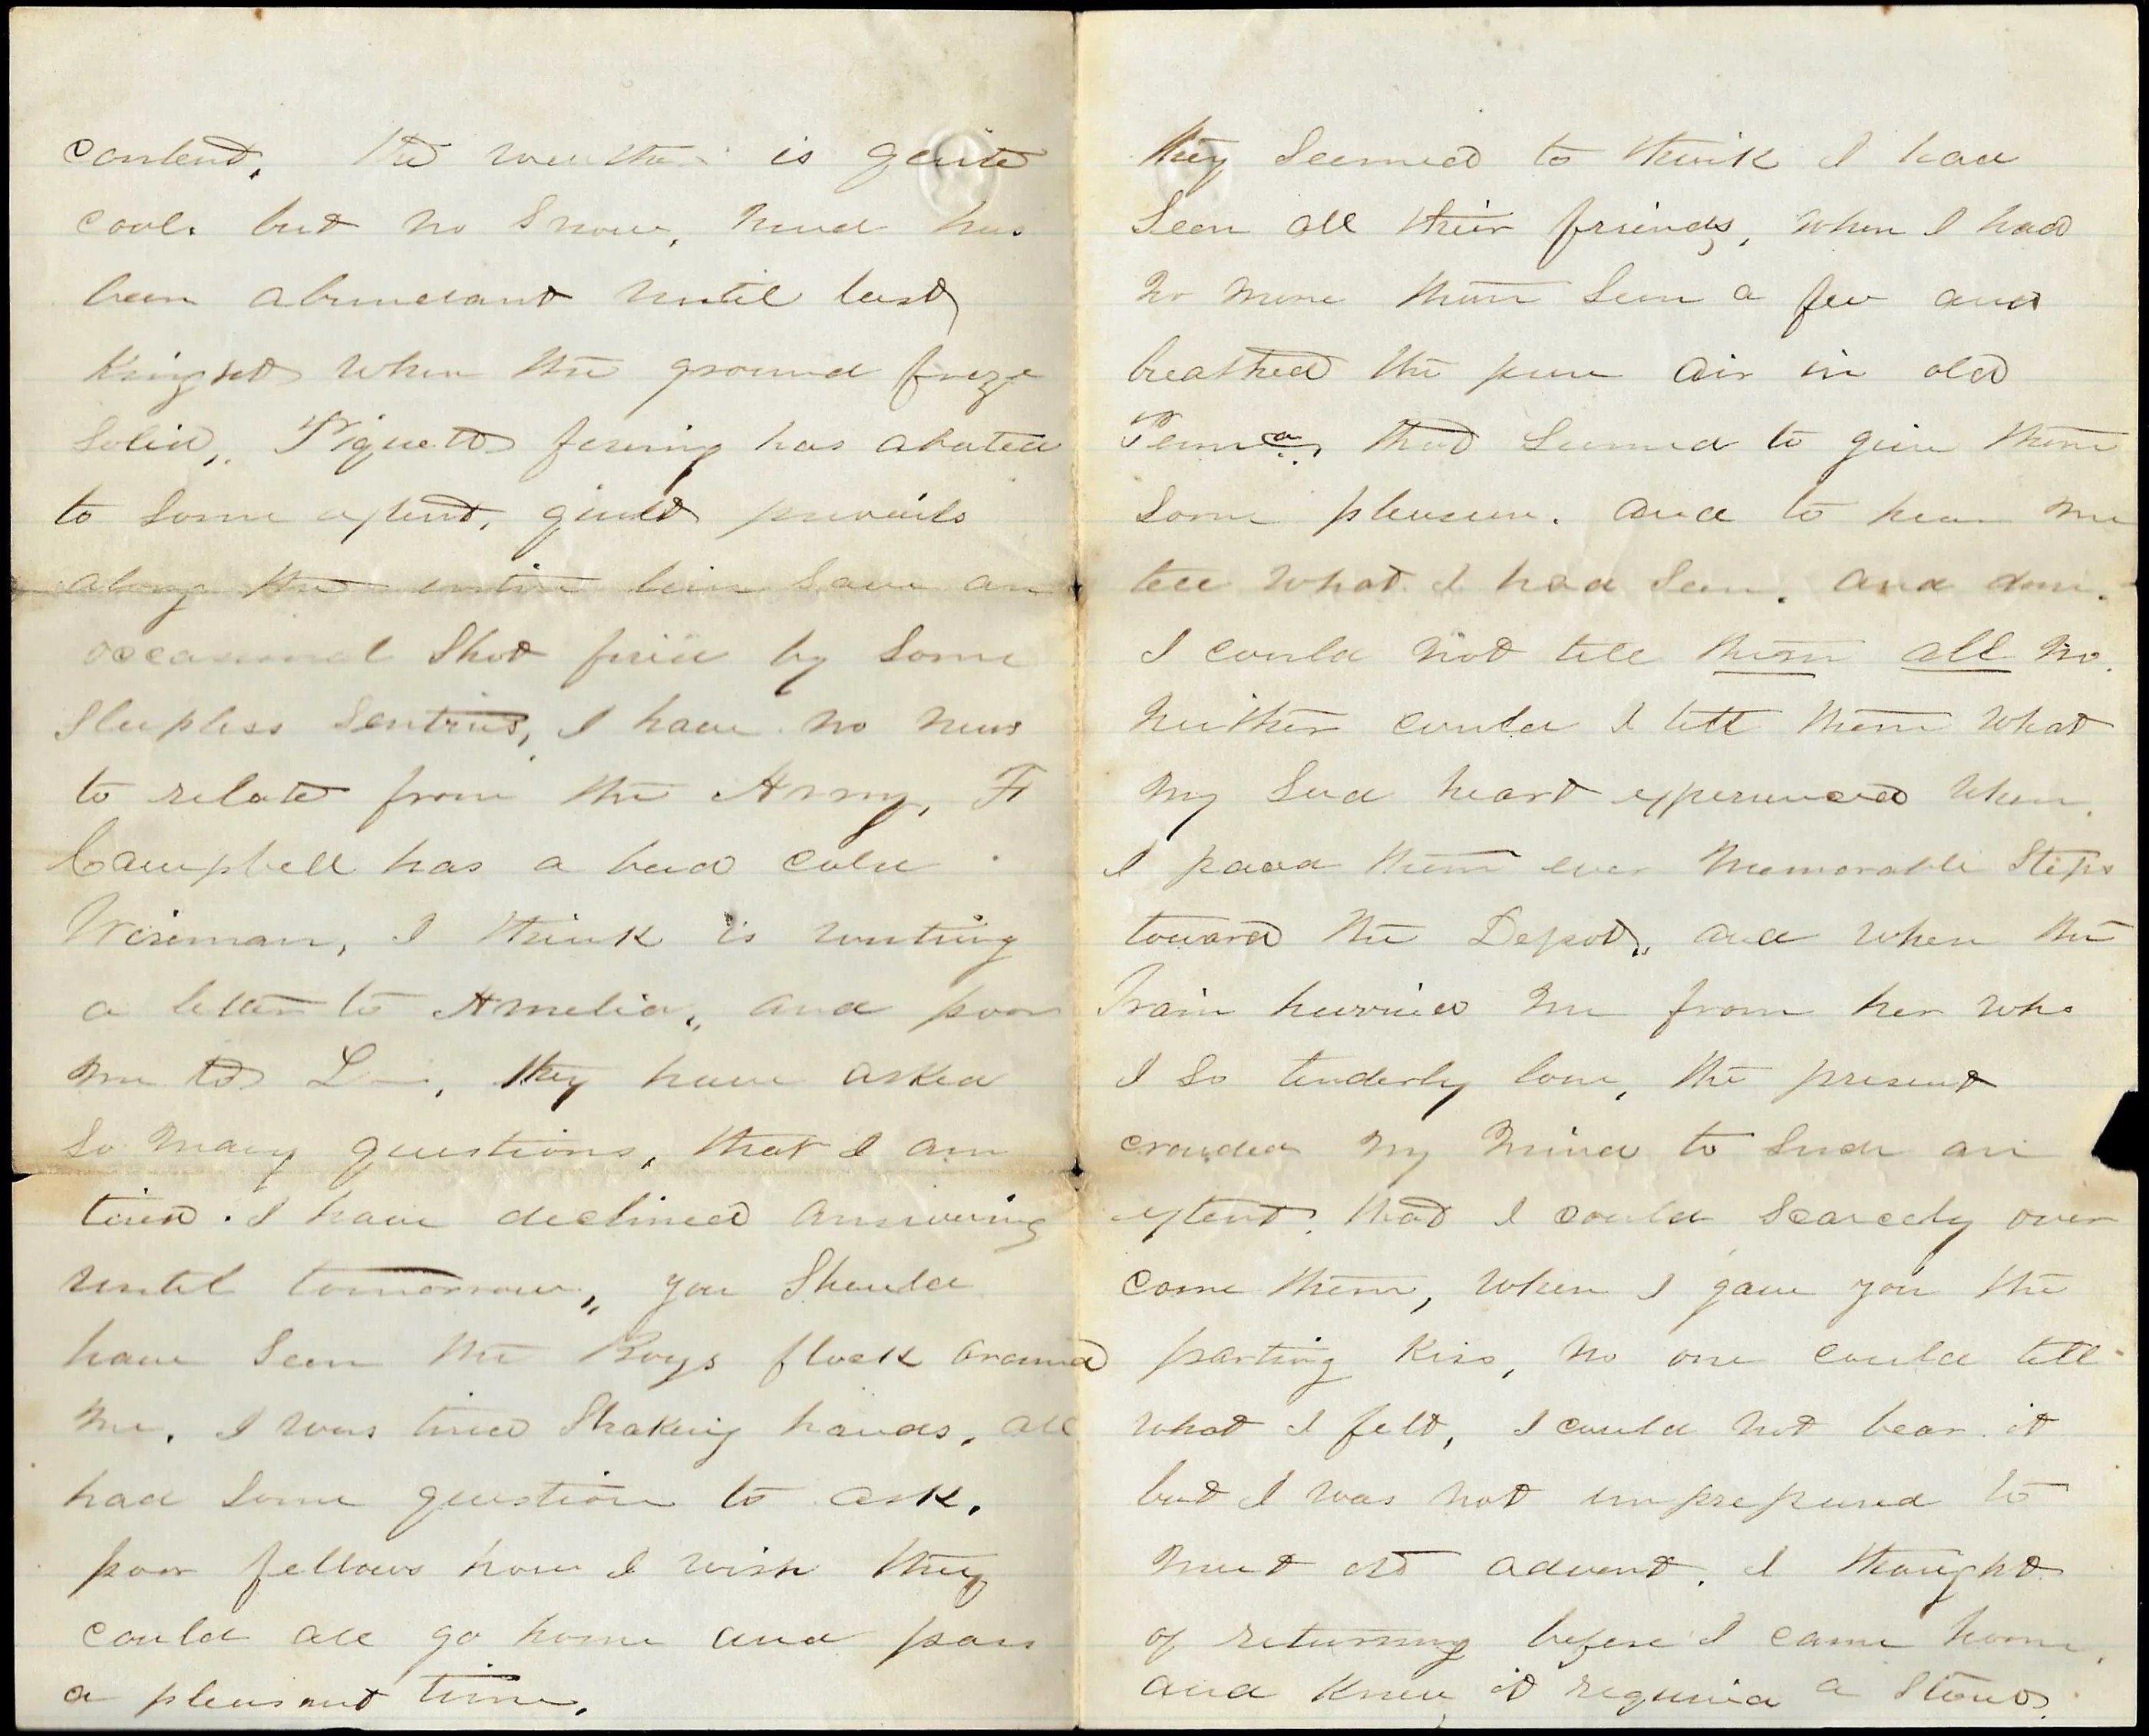 content, the weather is quite
cool. but no Snow, mud has
been abundant until last
knight when the ground froze
Solid,. Piquett firing has abated
to Some extent, quiet prevails
along the entire line Save an
occasional Shot fired by Some
Sleepless Sentries, I have no news
to relate from the Army,
Campbell has a bad cold.
Wiseman, I think is writing
a letter to Amelia, and poor
me to L—, they have asked
So many questions, that I am
tired. I have declined answering
until tomorrow,, you Should
have Seen the Boys flock around
me. I was tired Shaking hands, all
had Some question to ask.
poor fellows how I wish they
could all go home and pass
a pleasant time.
they Seemed to think I had
Seen all their friends, when I had
no more than Seen a few and
breathed the pure air in old
Penna, that Seemed to give them
Some pleasure. and to hear me
tell what I had Seen. and done.
I could not tell them all no.
neither could I tell them what
my Sad heart experienced when
I paced them ever memorable Steps
toward the Depot, and when the
Train hurried me from her who
I So tenderly love, the present
crowded my mind to Such an
extent, that I could Scarcely over
come them, when I gave you the
parting kiss, no one could tell
what I felt, I could not bear it
but I was not unprepared to
meet its advent. I thought
of returning before I came home,
and knew it required a Stout